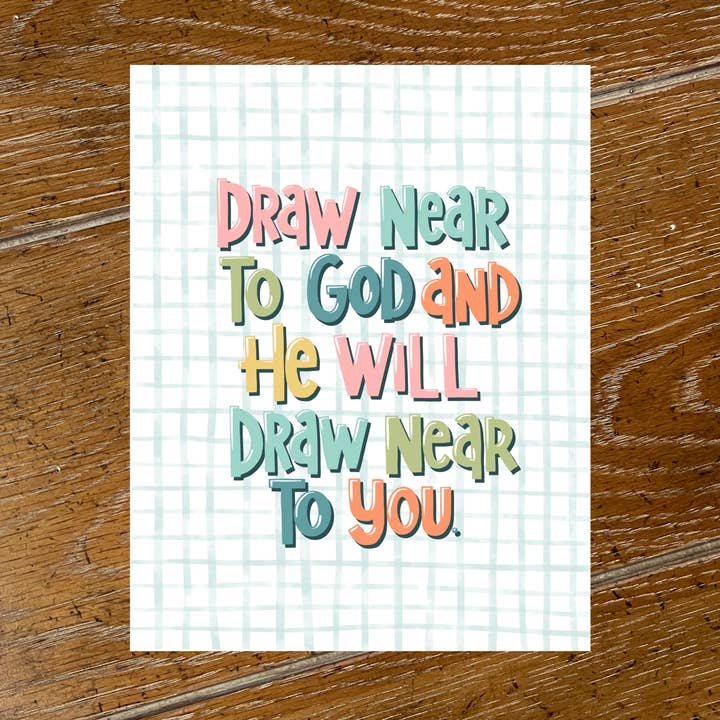 Draw Near
To God and
He Will
Draw Near
To You.